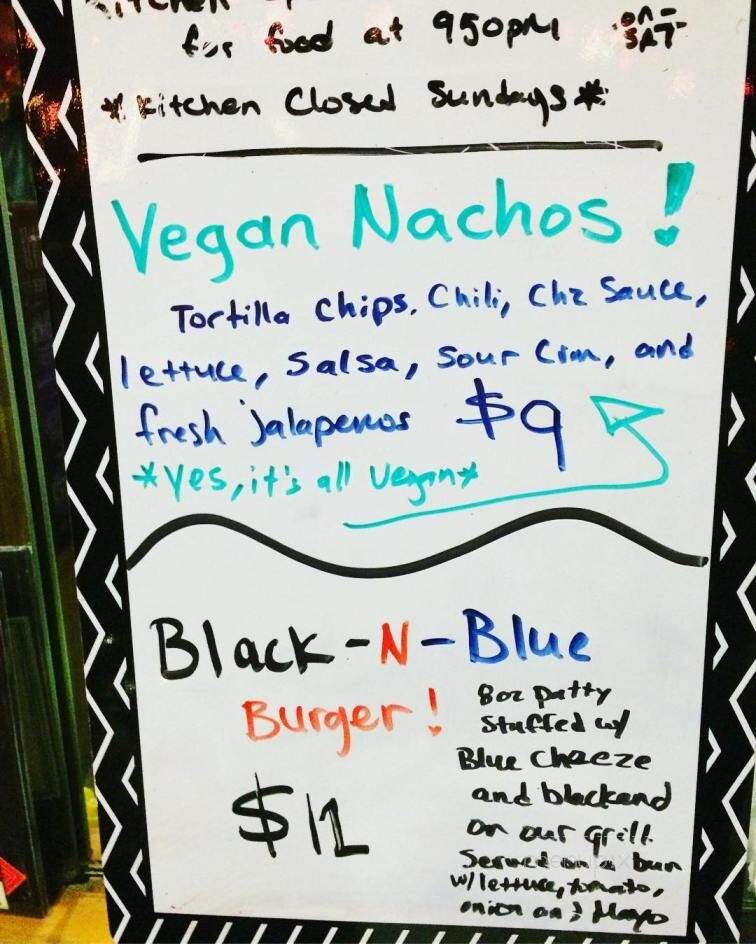 Kitchen
for food at 950pm
SAT
*Kitchen Closed Sundays*
Vegan Nachos!
Tortilla Chips, Chili, Chz Sauce,
lettuce, Salsa, Sour Crm, and
fresh jalapenos $9
*Yes, it's all vegan*
Black-N-Blue
Burger!
$12
8oz patty
Stuffed w/
Blue Cheeze
and blackend
on our grill.
Served on a bun
w/lettuce, tomato,
onion and Mayo